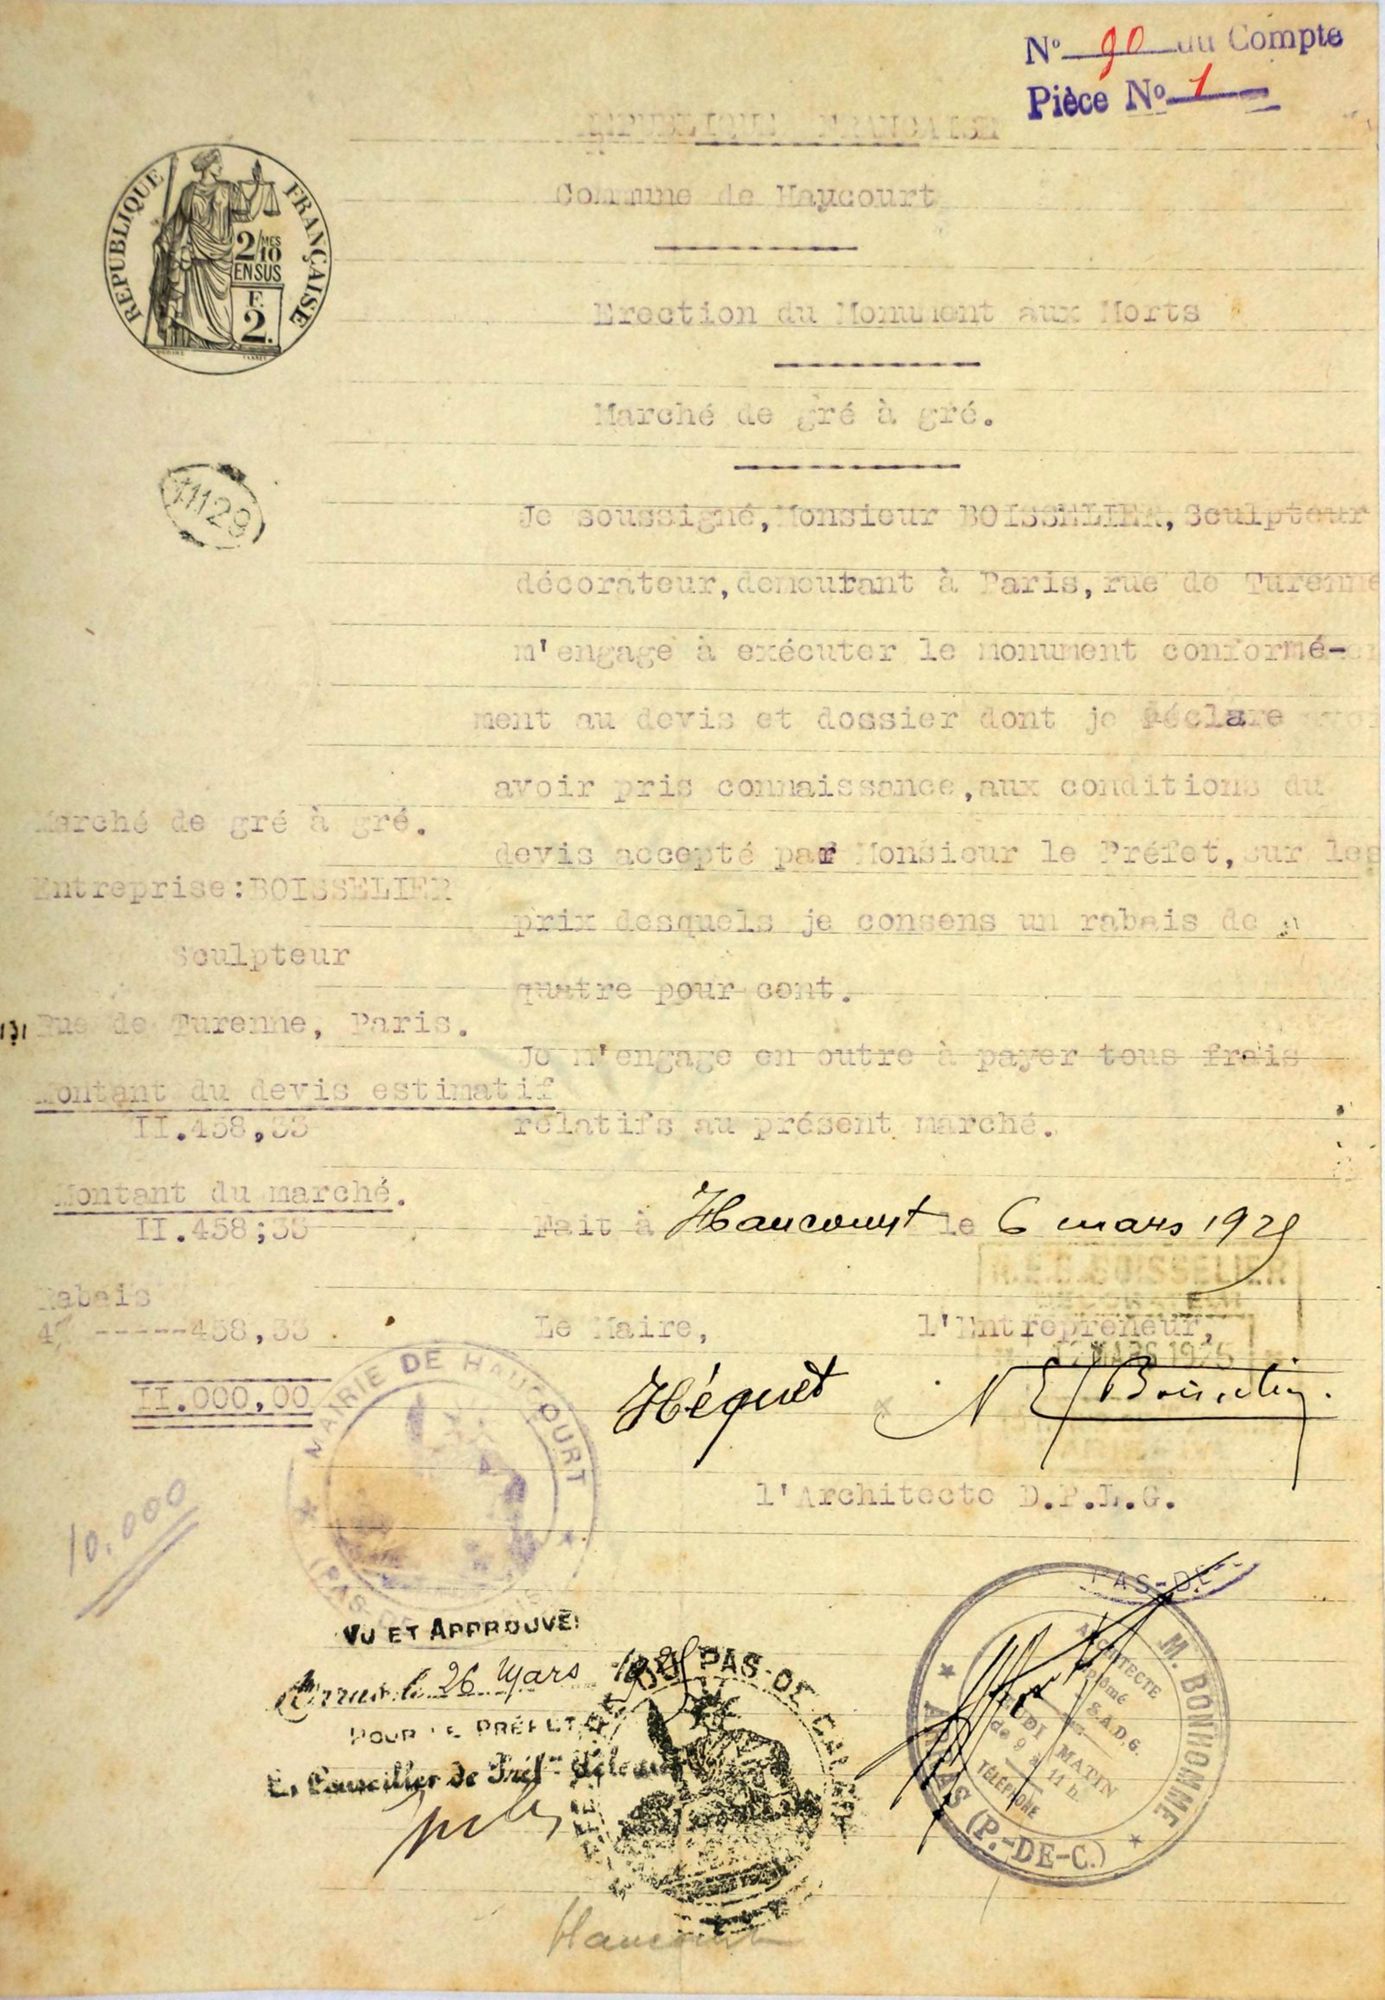 N° 90 du Compte
Pièce N° 1
REPUBLIQUE FRANCAISE
Commune de Haucourt
REPUBLIQUE FRANÇAISE
2/MES
10
EN SUS
F.
2.
Erection du Monument aux Morts
Marché de gré à gré.
Je soussigné, Monsieur BOISSELIER, Sculpteur
décorateur, demeurant à Paris, rue de Turenne
m'engage à exécuter le monument conformé-
ment au devis et dossier dont je déclare
avoir pris connaissance, aux conditions du
devis accepté par Monsieur le Préfet, sur les
prix desquels je consens un rabais de
quatre pour cent.
Je m'engage en outre à payer tous frais
relatifs au présent marché.
Marché de gré à gré.
Entreprise: BOISSELIER
Sculpteur
131 Rue de Turenne, Paris.
Montant du devis estimatif
II.458,33
Montant du marché.
II.458;33
Rabais
4% -----458,33
II.000,00
10.000
Fait à Haucourt le 6 mars 1925
Le Maire, l'Entrepreneur,
N.E.C. BOISSELIER
12 MARS 1925
Héquet N E Boisselier.
l'Architecte D.P.L.G.
MAIRIE DE HAUCOURT
(PAS-DE
VU ET APPROUVÉ:
Arras, le 26 Mars 1925
POUR LE PRÉFET
Le Conseiller de Préf.re délégué
PAS-DE-CALAIS
PAS-DE-
M. BONHOMME
ARCHITECTE
Diplômé
S.A.D.G.
JEUDI MATIN
de 9 à 11 h.
TÉLÉPHONE
ARRAS (P.-DE-C.)
Haucourt